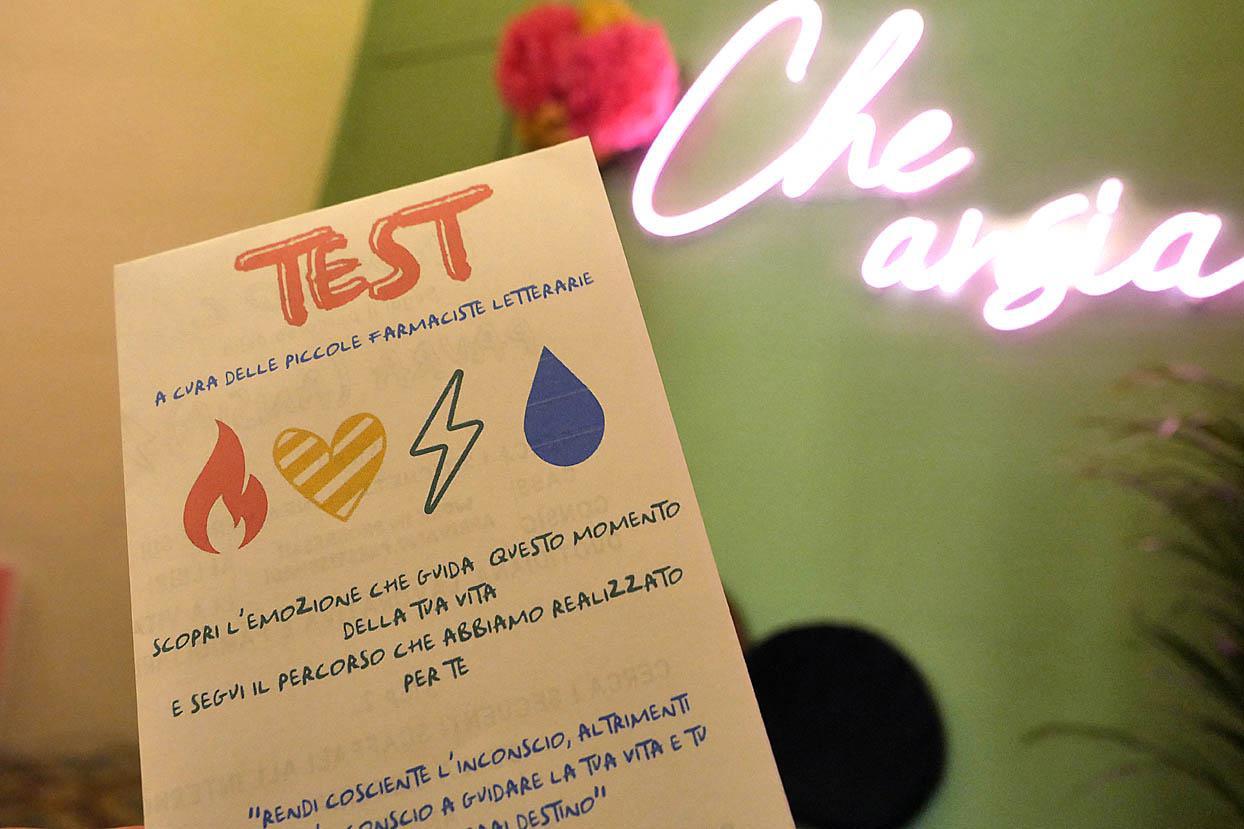 Che
ansia
TEST
A CURA DELLE PICCOLE FARMACISTE LETTERARIE
SCOPRI L'EMOZIONE CHE GUIDA QUESTO MOMENTO
DELLA TUA VITA
E SEGUI IL PERCORSO CHE ABBIAMO REALIZZATO
PER TE
"RENDI COSCIENTE L'INCONSCIO, ALTRIMENTI
A GUIDARE LA TUA VITA E TU
DESTINO"